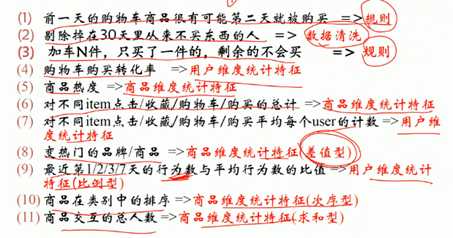 (1) 前一天的购物车商品很有可能第二天就被购买 =>规则
(2) 剔除掉在30天里从来不买东西的人 => 数据清洗
(3) 加车N件，只买了一件的，剩余的不会买 => 规则
(4) 购物车购买转化率 =>用户维度统计特征
(5) 商品热度 =>商品维度统计特征
(6) 对不同item点击/收藏/购物车/购买的总计 =>商品维度统计特征
(7) 对不同item点击/收藏/购物车/购买平均每个user的计数 =>用户维
度统计特征
(8) 变热门的品牌/商品 =>商品维度统计特征(差值型)
(9) 最近第1/2/3/7天的行为数与平均行为数的比值 =>用户维度统计
特征(比例型)
(10) 商品在类别中的排序 =>商品维度统计特征(次序型)
(11) 商品交互的总人数 =>商品维度统计特征(求和型)